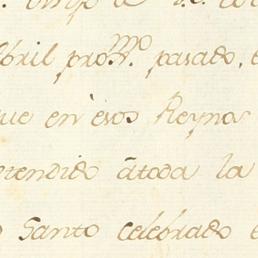 Abril prox.mo pasado,
que en esos Reynos
tendido á toda la
Santo celebrado e